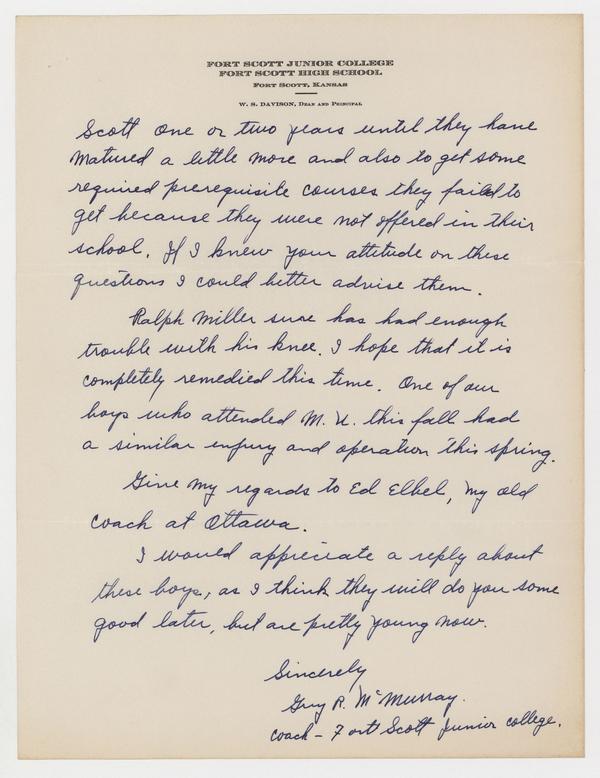 FORT SCOTT JUNIOR COLLEGE
FORT SCOTT HIGH SCHOOL
FORT SCOTT, KANSAS
W. S. DAVISON, DEAN AND PRINCIPAL
Scott one or two years until they have
matured a little more and also to get some
required prerequisite courses they failed to
get because they were not offered in their
school. If I knew your attitude on these
questions I could better advise them.
Ralph Miller sure has had enough
trouble with his knee. I hope that it is
completely remedied this time. One of our
boys who attended M. U. this fall had
a similar injury and operation this spring.
Give my regards to Ed Elbel, my old
coach at Ottawa.
I would appreciate a reply about
these boys, as I think they will do you some
good later, but are pretty young now.
Sincerely
Guy R. McMurray.
Coach - Fort Scott Junior college.